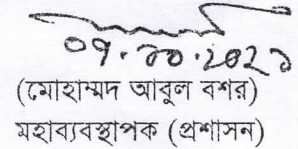 ০৭.১০.২০২১
(মোহাম্মদ আবুল বশর)
মহাব্যবস্থাপক (প্রশাসন)